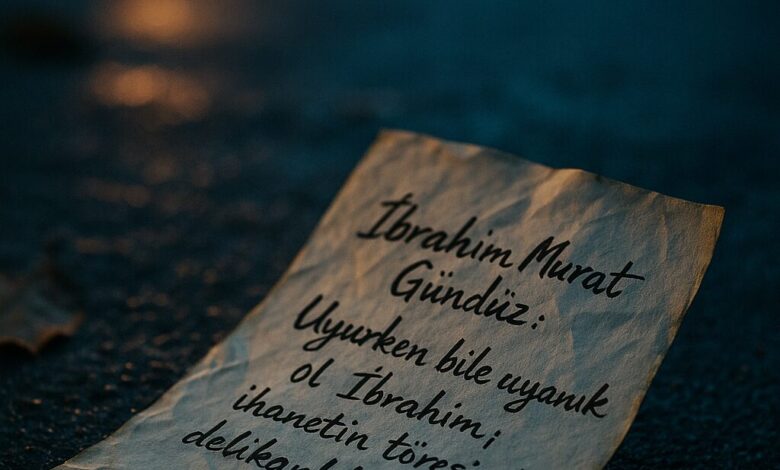 İbrahim Murat
Gündüz:
Uyurken bile uyanık
ol İbrahim;
ihanetin